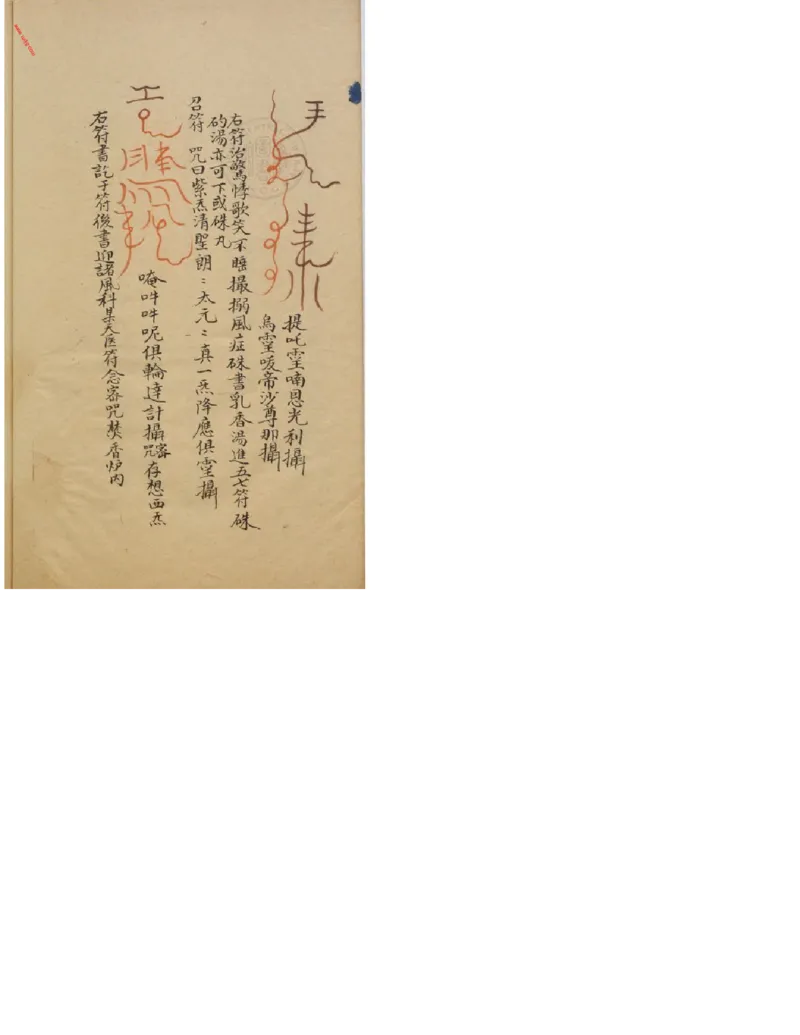 提吒霊喃恩光利攝
烏霊唆帝沙尊那攝
右符治驚悸歌笑不睡撮搦風症硃書乳香湯進五七符硃
砂湯亦可下或硃丸
召符 咒曰紫炁清聖朗〻太元〻真一炁降應俱霊攝
唵吽吽呢俱輪達計攝密咒存想西炁
右符書訖于符後書迎諸風科某天医符念密咒焚香炉内